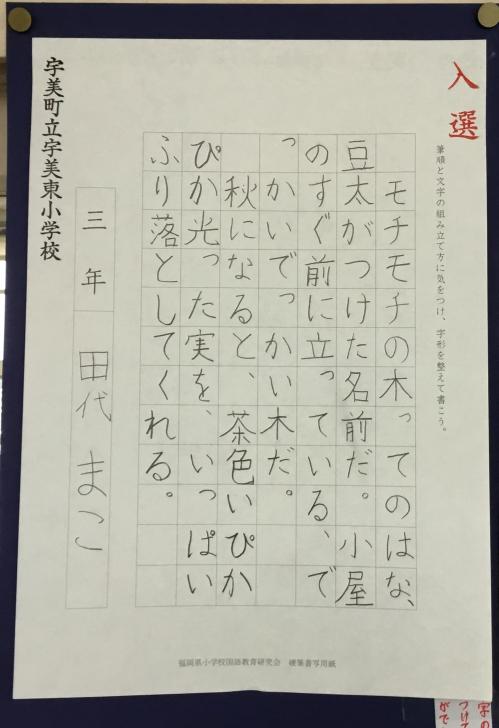 入選
筆順と文字の組み立て方に気をつけ、字形を整えて書こう。
モチモチの木ってのはな、
豆太がつけた名前だ。小屋
のすぐ前に立っている、で
っかいでっかい木だ。
秋になると、茶色いぴか
ぴか光った実を、いっぱい
ふり落としてくれる。
三年 田代まこ
宇美町立宇美東小学校
福岡県小学校国語教育研究会 硬筆書写用紙